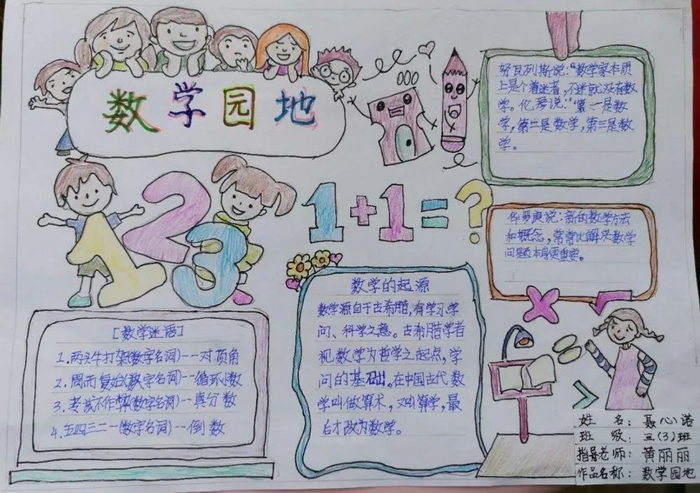 数学园地
诺瓦列斯说:“数学家本质
上是个着迷者,不迷就没有数
学。伦琴说:“第一是数
学,第二是数学,第三是数
学。
123
1+1=?
华罗庚说:新的数学方法
和概念,常常比解决数学
问题本身更重要。
数学的起源
数学源自于古希腊,有学习学
问、科学之意。古希腊学者
视数学为哲学之起点,学
问的基础。在中国古代数
学叫做算术,又叫算学,最
后才改为数学。
[数学迷语]
1.两头牛打架(数学名词)--对顶角
2.周而复始(数学名词)--循环数
3.考试不作弊(数学名词)--真分数
4.五四三二一(数学名词)--倒数
姓 名:聂心诺
班 级:三(3)班
指导老师:黄丽丽
作品名称:数学园地